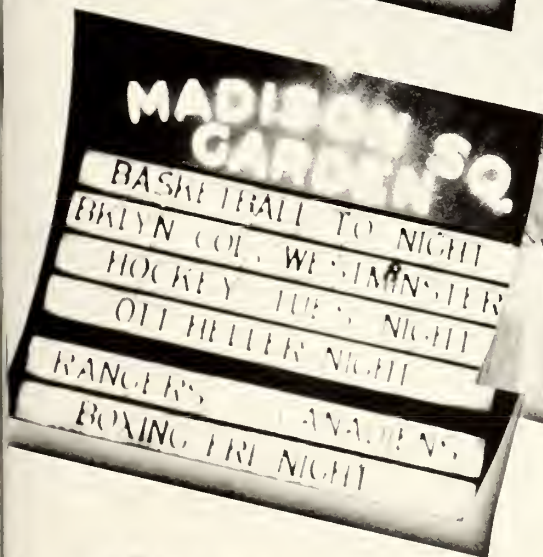 MADISON SQ.
GARDEN
BASKETBALL TO NIGHT
BKLYN COL. WESTMINSTER
HOCKEY TUES NIGHT
OTT HELLER NIGHT
RANGERS CANADIENS
BOXING FRI NIGHT